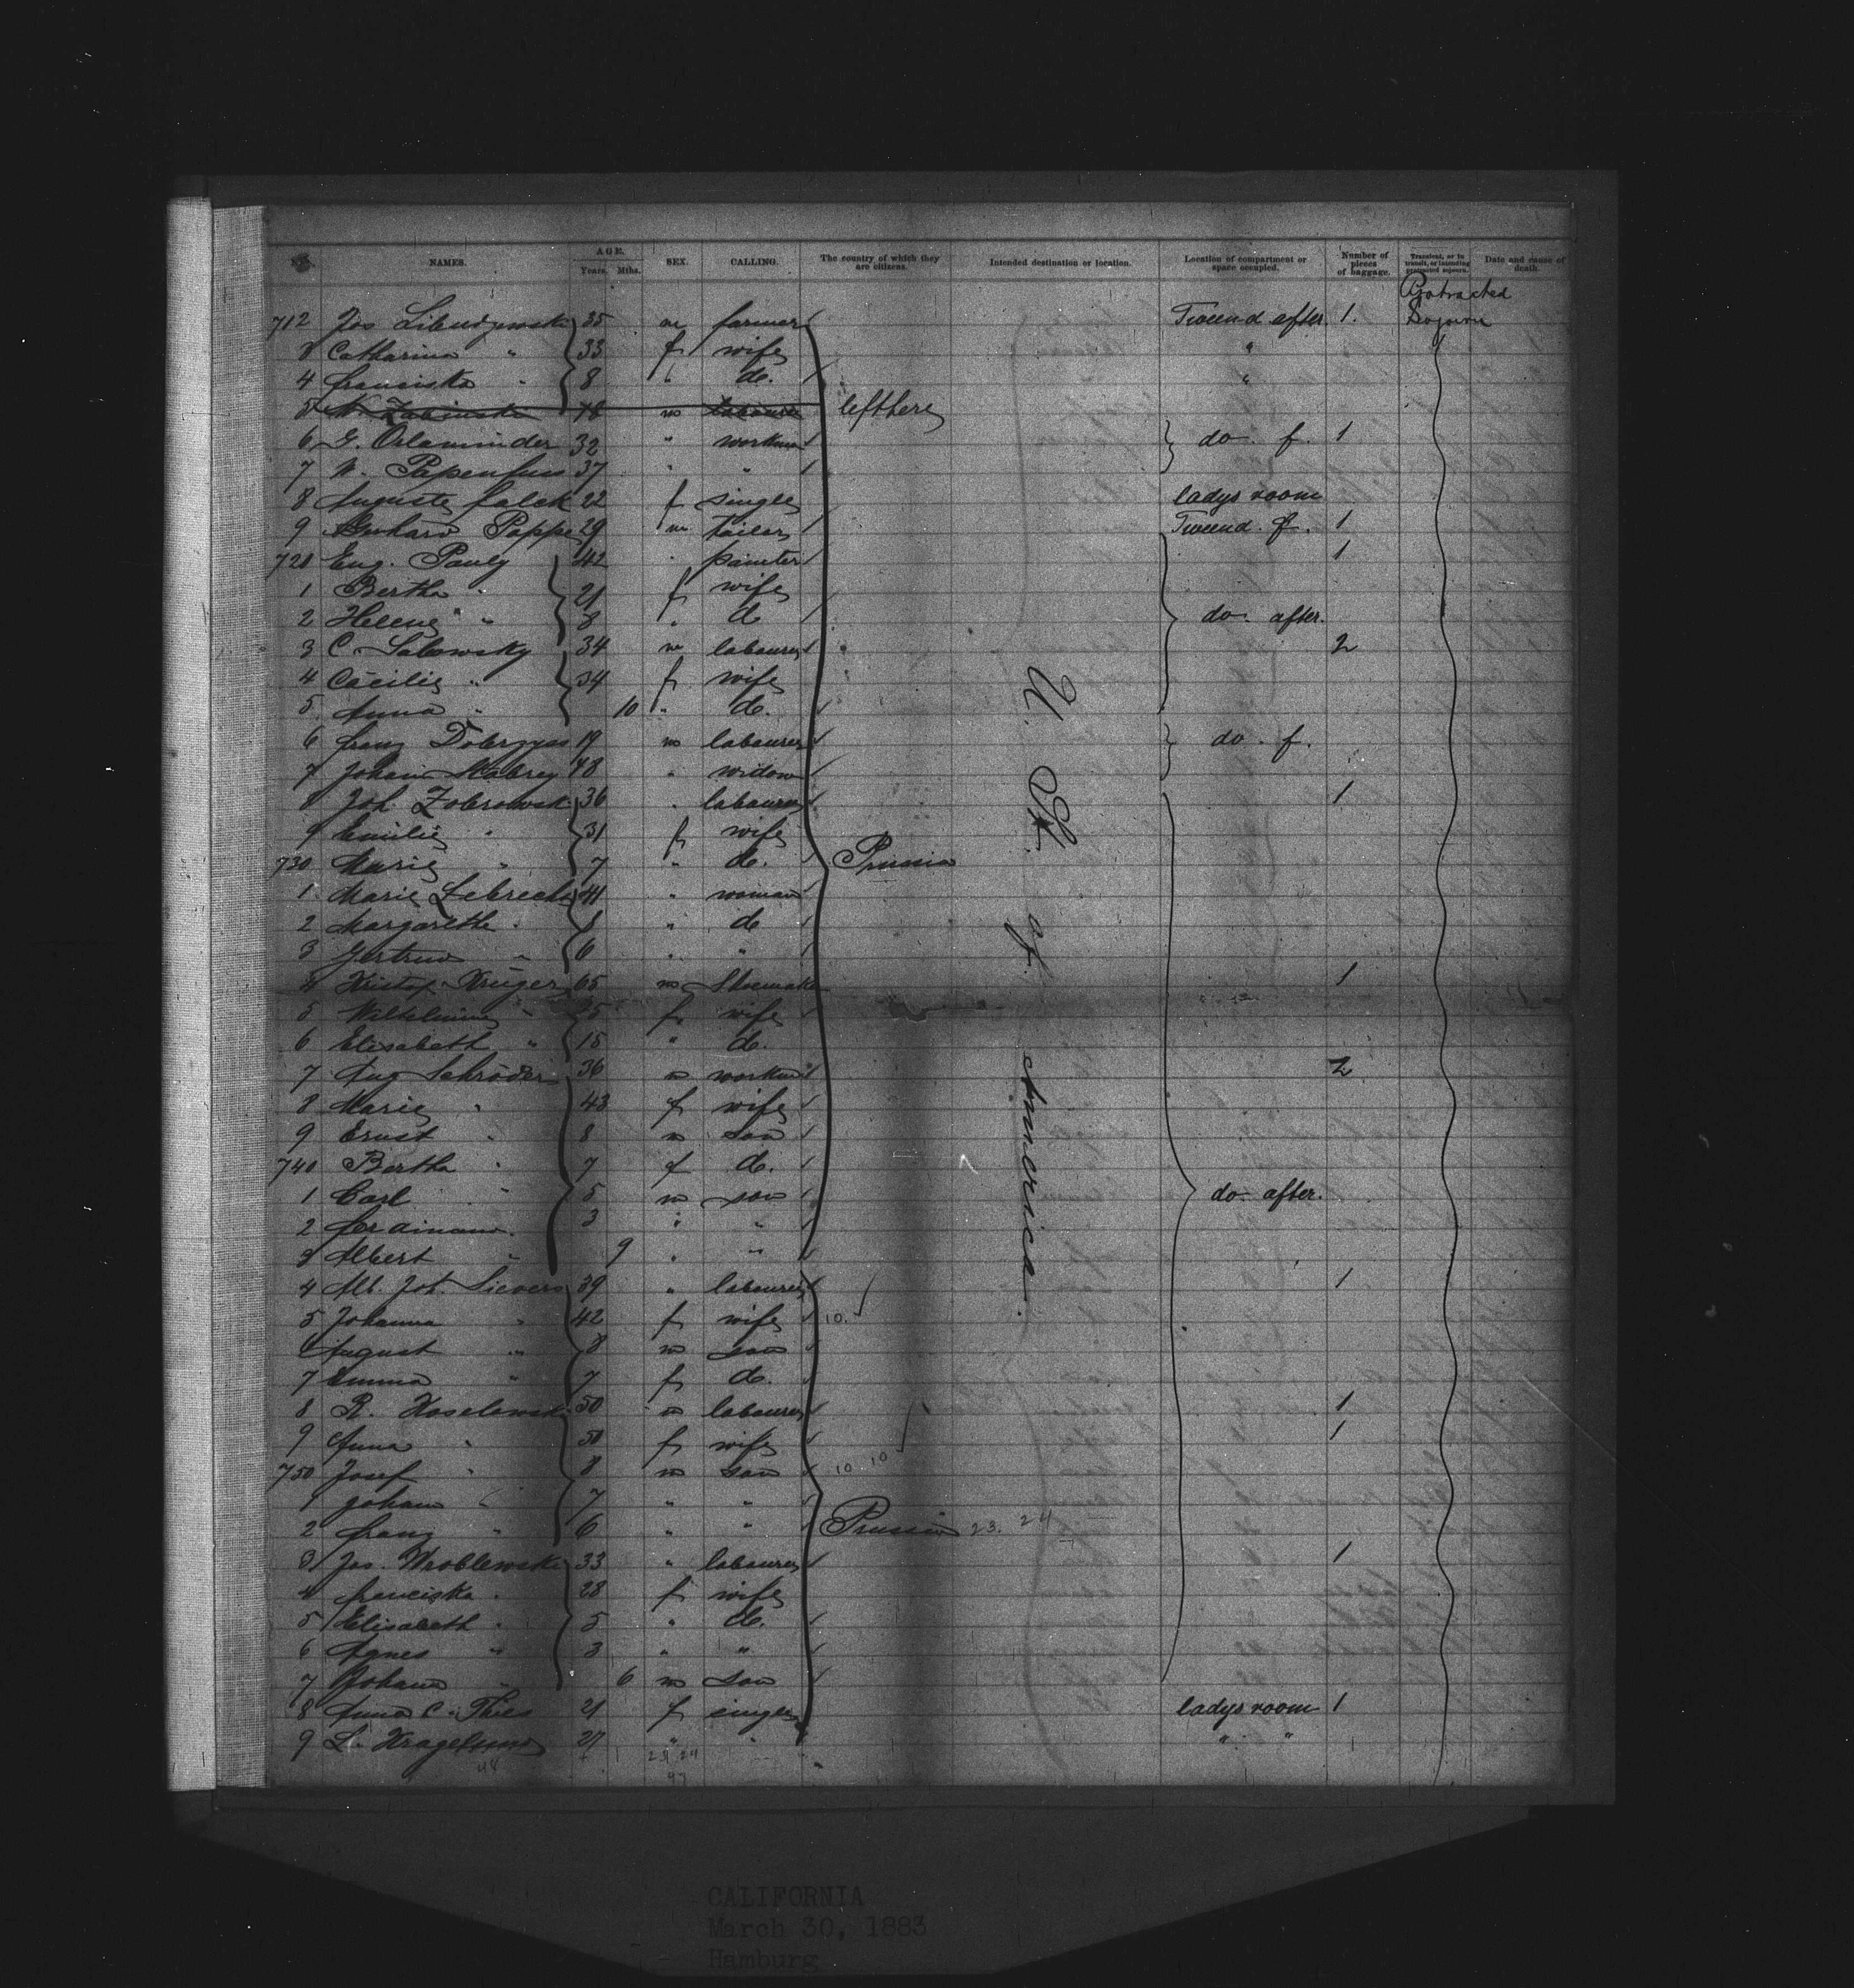 No. NAMES. AGE. Years. Mths. SEX. CALLING. The country of which they are citizens. Intended destination or location. Location of compartment or space occupied. Number of pieces of baggage. Transient, or in transit, or intending protracted sojourn. Date and cause of death.
Protracted Sojourn
712 Jos 35 m farmer Tweend after 1.
3 Catharina " 33 f wife "
4 Franciska " 8 " do. "
5 18 m labourer left here
6 G. Orlaminder 32 " workman do. f. 1
7 W. Papenfuss 37 " "
8 Auguste Falck 22 f single ladys room
9 Gerhard Pappe 29 m tailor Tweend. f. 1
720 Eug. Pauly 42 " painter 1
1 Bertha " 21 f wife
2 Helene " 8 " do do. after.
3 C. Salewsky 34 m labourer 2
4 Cäcilie " 34 f wife
5 Anna " 10 " do.
6 Franz 19 m labourer do. f.
7 Johann 48 " widow
8 Joh. 36 " labourer 1
9 Emilie " 31 f wife
730 Marie " 7 " do. Prussia
1 Marie Lebrecht 41 " woman
2 Margarethe " 8 " do
3 Gertrud " 6 " "
4 Kristof Krüger 65 m Shoemaker 1
5 Wilhelmine " f wife
6 Elisabeth " 15 " do.
7 Aug Schröder 36 m workman 2
8 Marie " 43 f wife
9 Ernst " 8 m son
740 Bertha " 7 f do.
1 Carl " 5 m son do. after.
2 Ferdinand " 3 " "
3 Albert " 9 " "
4 Alb. Joh. Sievers 39 " labourer 1
5 Johanna " 42 f wife 10.
6 August " 8 m son
7 Emma " 7 f do.
8 R. 50 m labourer 1
9 Anna " 50 f wife 1
750 Josef " 8 m son 10 10
1 Johann " 7 " "
2 Franz " 6 " " Prussia 23. 24
3 Jos. Wroblewski 33 " labourer 1
4 Franciska " 28 f wife
5 Elisabeth " 5 " do.
6 Agnes " 3 " "
7 Johann " 6 m son
8 Anna C. Thies 21 f single ladys room 1
9 L. 27 " " " "
23 24
47
U. St. of America.
CALIFORNIA
March 30, 1883
Hamburg